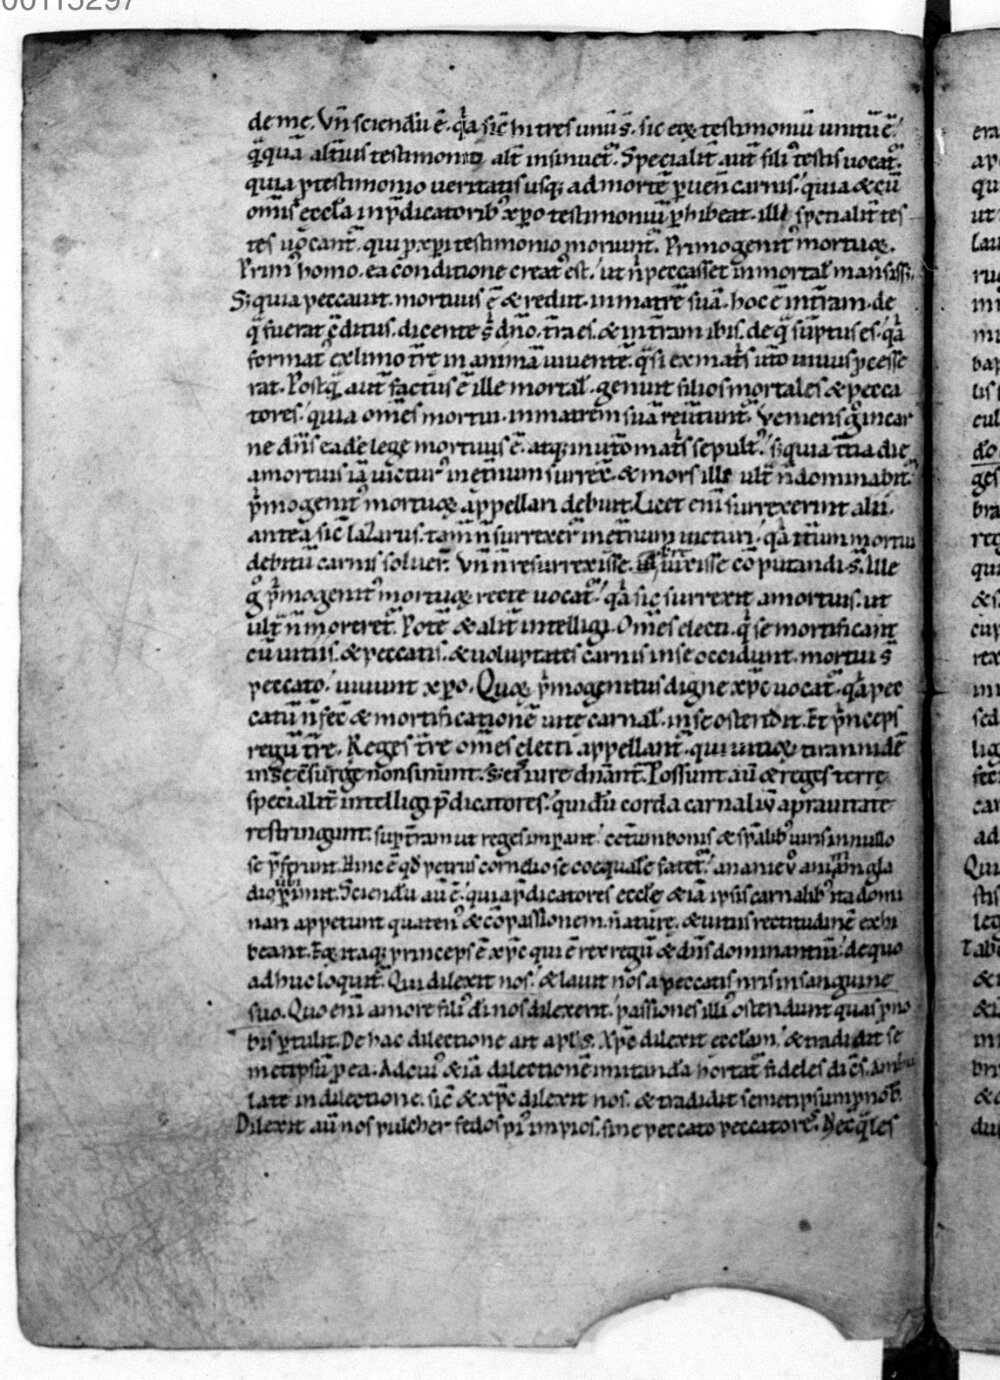 00115297
de me. Vn̄ sciendū ē. q̇a sic̄ hi tres unū s̄. sic eoꝝ testimoniū unū ē.
q̄quā altius testimonio alt insinuet. Specialit̄ aut̄ fili᷒ testis uocat᷒.
quia ꝑ testimonio ueritatis usq; ad mortē ꝑuen̄ carnis. quia & cū
om̄is eccl̄a in p̄dicatorib᷒ xp̄o testimoniū ꝑhibeat. illi sp̄cialit̄ tes
tes uocant̄. qui ꝓ xp̄i testimonio moriunt̄. Primogenit᷒ mortuoꝝ.
Prim᷒ homo. ea conditione creat᷒ est. ut n̄ peccasset inmortal̄ mansiss;.
S; quia peccauit. mortuus ē & rediit. in matrē suā. hoc ē in t̄ram. de
q̄ fuerat ęditus. dicente s̄ dn̄o. t̄ra es. & in t̄ram ibis. de q̄ sūptus es. q̇a
format᷒ ex limo t̄re in animā uiuentē. q̄si ex mat̄s ut̄o uiuus ꝓcesse
rat. Postq̄ aut̄ factus ē ille mortal̄. genuit filios mortales & pecca
tores. quia om̄es mortui. in matrem suā reūtunt̄. Veniens g̊ in car
ne dn̄s eadē lege mortuus ē. atq; in ut̄o mat̄s sepult᷒. s; quia t̄tia die
a mortuis iā uictur᷒ in et̄num surrex̄. & mors illi ult̄ n̄ dominabit᷒.
p̄mogenit᷒ mortuoꝝ appellari debuit. Licet eni surrexerint alii.
antea sic̄ lazarus. tam̄ n̄ surrexer̄ in et̄num uicturi. q̇a it̄um mortui
debitū carnis soluer̄. Vn̄ n̄ resurrexisse. surrexisse cōputandi s̄. Ille
g̊ p̄mogenit᷒ mortuoꝝ recte uocat᷒. q̇a sic surrexit a mortuis. ut
ult̄ n̄ moreret̄. Potē & alit̄ intelligi. Om̄es electi. q̇ se mortificant
cū uitiis. & peccatis. & uoluptates carnis in se occidunt. mortui s̄
peccato. uiuunt xp̄o. Quoꝝ p̄mogenitus digne xp̄c uocat᷒. q̇a pec
catū n̄ fec̄ & mortificationē uite carnal̄. in se ostendit. Et p̄nceps
regū t̄re. Reges t̄re om̄es electi appellant̄. qui uitioꝝ tirannidē
in se ēsurge non sinunt. s; ei᷒ iure dn̄ant̄. Possunt aū & reges terre
specialit̄ intelligi p̄dicatores. qui dū corda carnaliū a prauitate
restringunt. suꝑ t̄ram ut reges imꝑant. cet̄um bonis & sp̄alib᷒ uiris in nullo
se p̄ferunt. Hinc ē qd̄ petrus cornelio se coequale fatet̄. ananie ů animam gla
dio ꝑimit. Sciendū aū ē. quia p̄dicatores eccl̄e & iā ipsis carnalib᷒ ita domi
nari appetunt quaten᷒ & cōpassionem n̄ature. & uirtus rectitudinē exhi
beant. Eoꝝ itaq; princeps ē xp̄c qui ē rex regū & dn̄s dominantiū. de quo
adhuc loquit̄. Qui dilexit nos. & lauit nos a peccatis nr̄is in sanguine
suo. Quo eni amore fili᷒ di nos dilexerit. passiones illi᷒ ostendunt quas ꝓ no
bis ꝑtulit. De hac dilectione ait apl̄s. Xp̄c dilexit eccl̄am. & tradidit se
metipsū ꝓ ea. Ad cui᷒ & iā dilectionē imitandā hortat̄ fideles dicēs. Ambu
late in dilectione. sic̄ & xp̄c dilexit nos. & tradidit semetipsum ꝓ nob̄.
Dilexit aū nos pulcher fedos pi᷒ impios. sine peccato peccatores. Nec q̄les